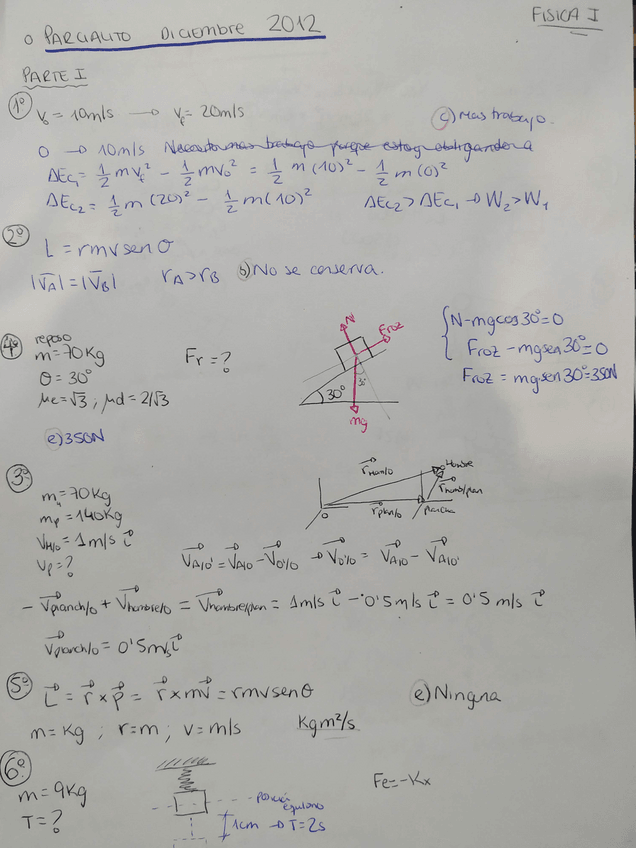 FISICA I
o PARCIALITO DICIEMBRE 2012
PARTE I
1º) v₀ = 10m/s → v_f = 20m/s c) Mas trabajo.
0 → 10m/s Necesito mas trabajo porque estoy obligando a
ΔEc₁ = 1/2 m v_f² - 1/2 m v₀² = 1/2 m (10)² - 1/2 m (0)²
ΔEc₂ = 1/2 m (20)² - 1/2 m (10)² ΔEc₂ > ΔEc₁ → W₂ > W₁
2º) L = rmv sen θ
|V_A| = |V_B| r_A > r_B b) No se conserva.
4º) reposo
m = 70 Kg Fr = ?
θ = 30°
μe = √3 ; μd = 2/√3
e) 350N
N
Froz
30°
mg
N - mg cos 30° = 0
Froz - mg sen 30° = 0
Froz = mg sen 30° = 350N
3º) m_H = 70 Kg
m_p = 140 Kg
V_H/0 = 1 m/s i
V_p = ?
r_hom/0
Hombre
r_homb/plan
r_plan/0
plancha
0
V_A/0' = V_A/0 - V_0'/0 → V_0'/0 = V_A/0 - V_A/0'
- V_planch/0 + V_hombre/0 = V_hombre/plan = 1m/s i - 0'5 m/s i = 0'5 m/s i
V_planch/0 = 0'5 m/s i
5º) L = r × p = r × mv = rmv sen θ e) Ninguna
m = Kg ; r = m ; v = m/s Kg m²/s
6º) m = 9Kg
T = ?
posición
equilibrio
1cm → T = 2s
Fe = -Kx